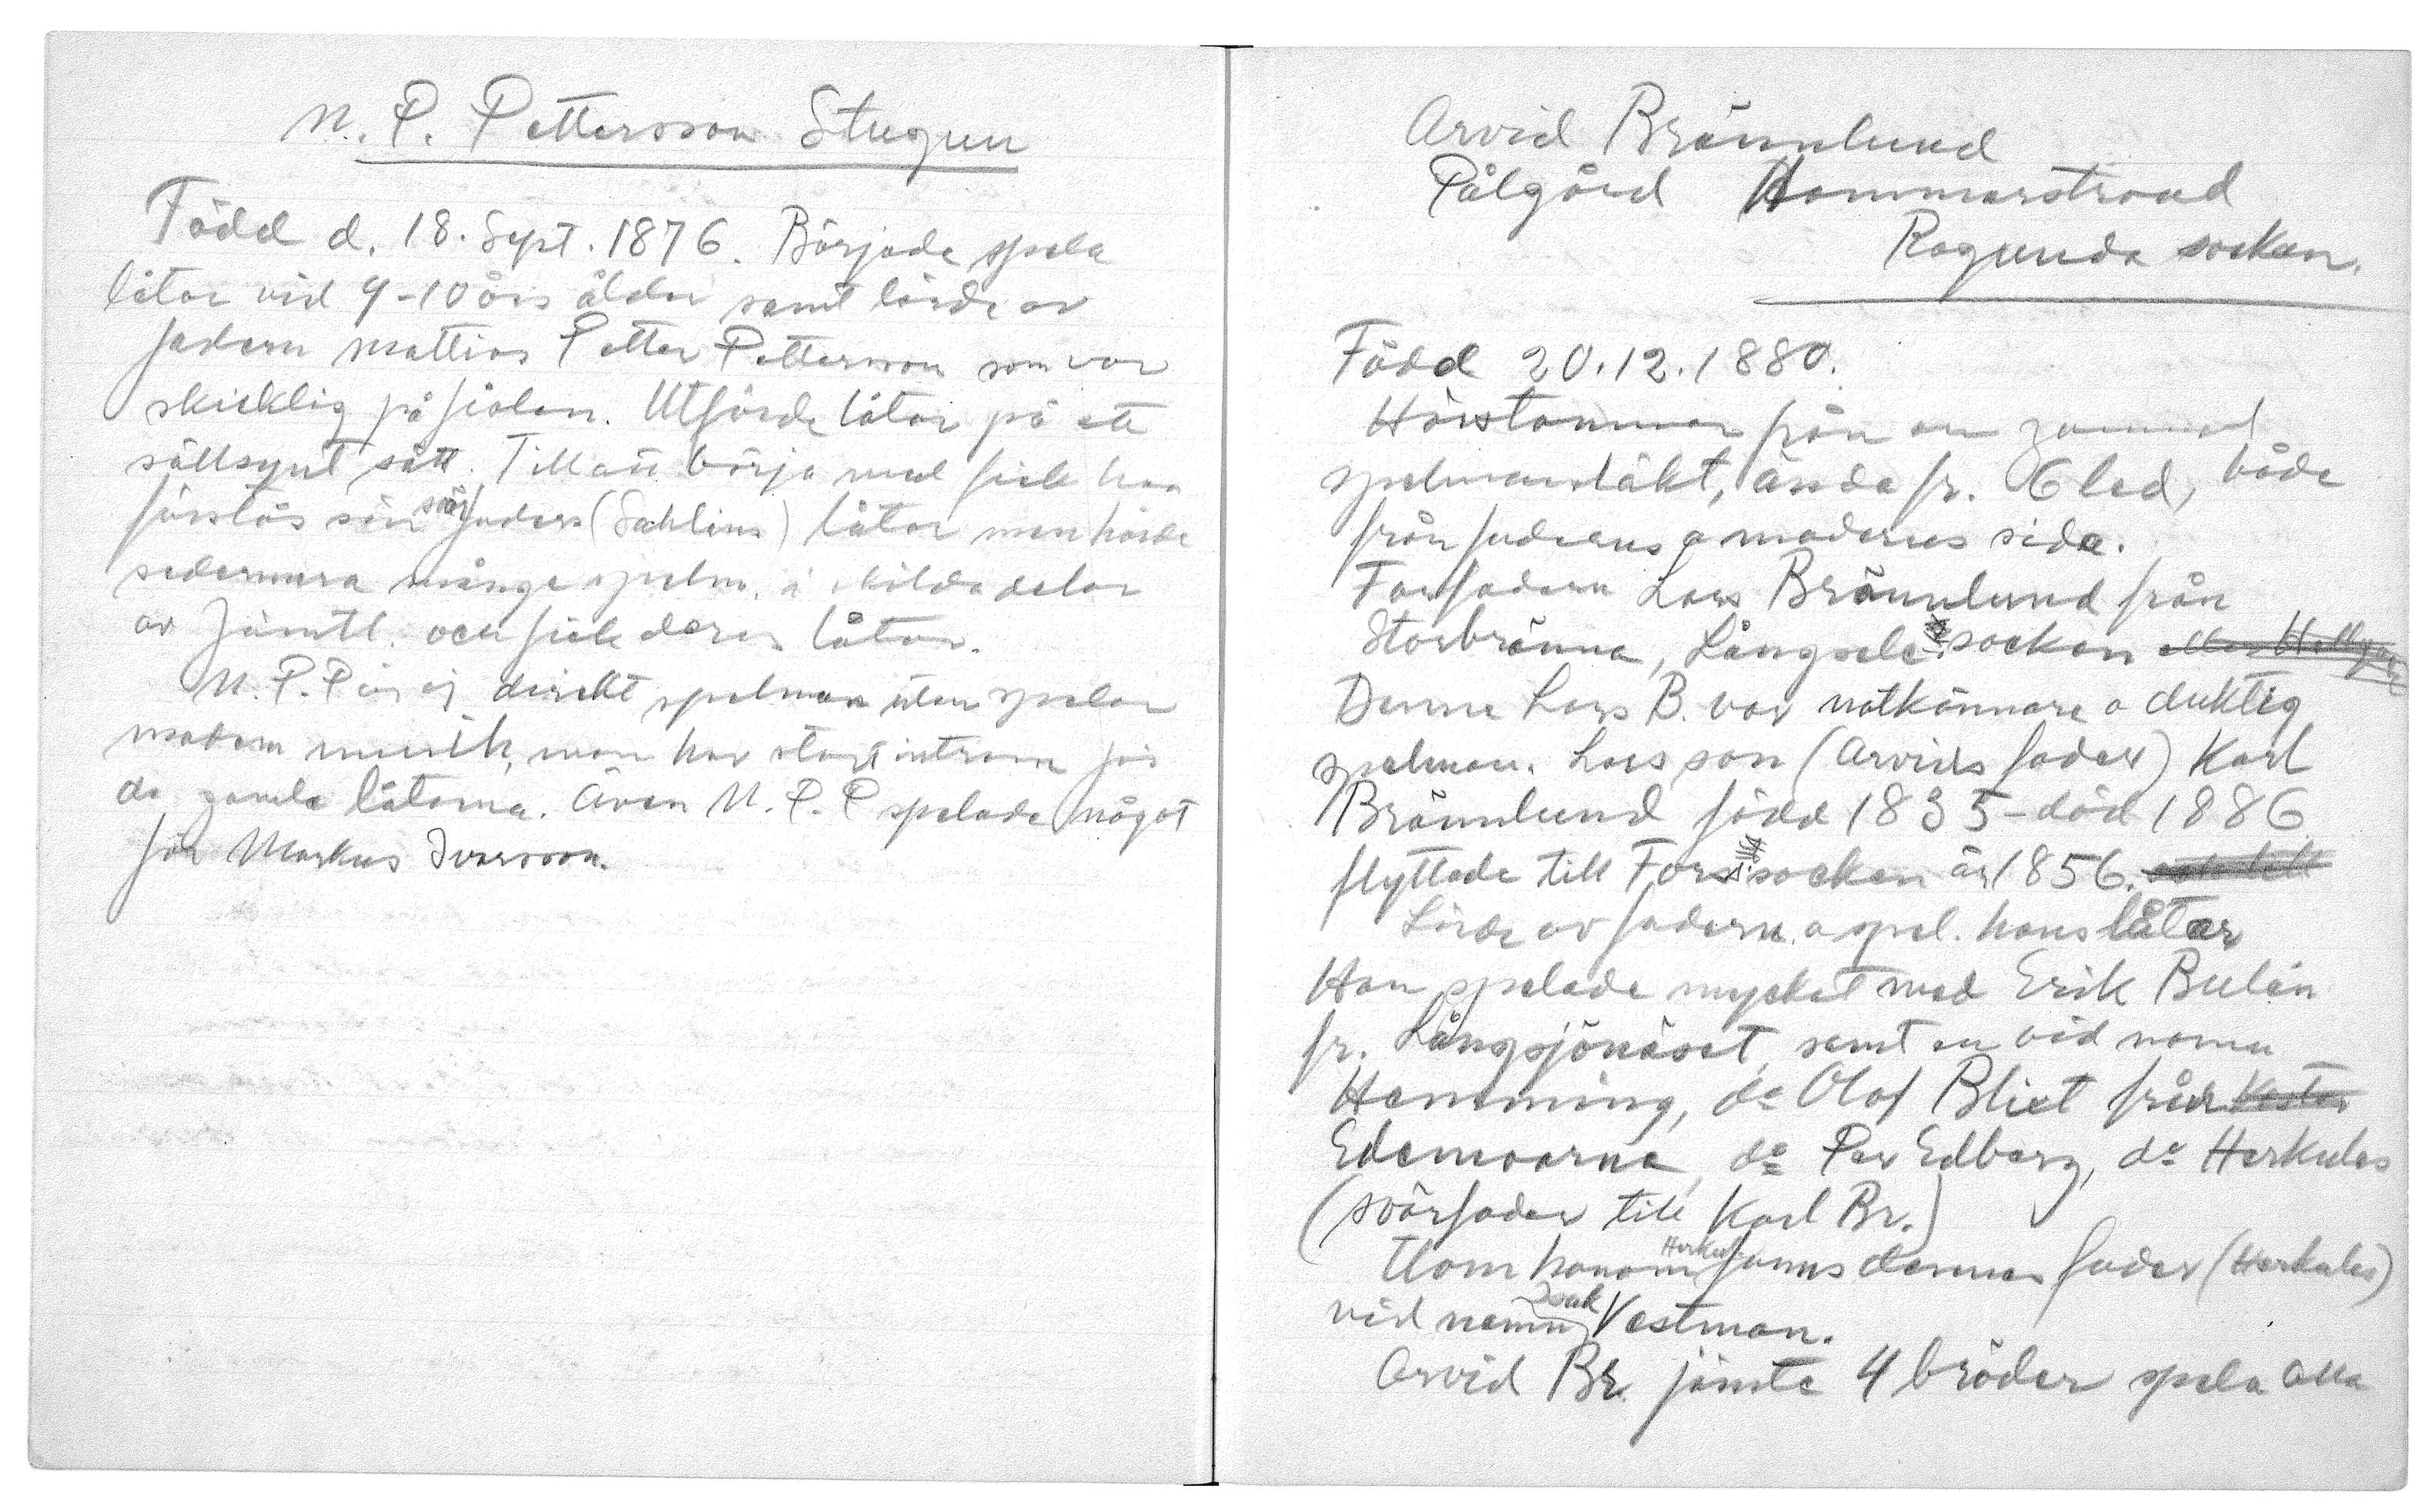 N. P. Pettersson Stugun
Född d. 18. Sept. 1876. Började spela
låtar vid 9-10 års ålder samt lärde av
fadern Mattias Petter Pettersson som var
skicklig på fiolen. Utförde låtar på ett
sällsynt sätt. Till att börja med fick han
förstås sin svärfaders (Sahlins) låtar men hörde
sedermera många spelm. i skilda delar
av Jämtl. och fick deras låtar.
N. P. P är ej direkt spelman utan spelar
modern musik, men har stort intresse för
de gamla låtarna. Även N. P. P spelade något
för Markus Ivarsson.
Arvid Brännlund
Pålgård Hammarstrand
Ragunda socken.
Född 20.12.1880.
Härstammar från en gammal
spelmansläkt, ända fr. 6 led, både
från faderns o moderns sida.
Farfadern Lars Brännlund från
Storbränna, Långsele socken
Denne Lars B. var notkännare o duktig
spelman. Lars son (Arvids fader) Karl
Brännlund född 1835 - död 1886
flyttade till Fors socken år 1856.
Lärde av fadern o spel. hans låtar
Han spelade mycket med Erik Bulin
fr. Långsjönäset, samt en vid namn
Hemming, do Olof Blixt från
Edemoarna, do Per Edberg, do Herkules
(svärfader till Karl Br.)
Utom honom Herkul. fanns dennes fader (Herkules)
vid namn Isak Vestman.
Arvid Br. jämte 4 bröder spela alla